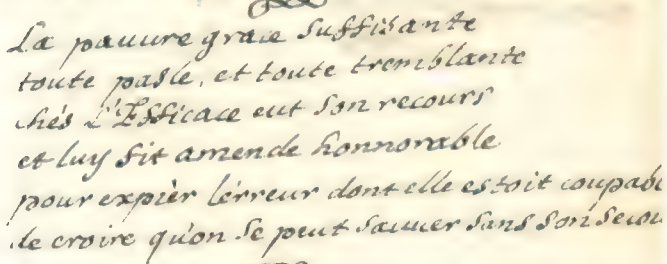 La pauure grace Suffisante
toute pasle, et toute tremblante
chés L'Efficace eut Son recours
et luy fit amende honnorable
pour expièr lérreur dont elle estoit coupabl
de croire qu'on Se peut Sauuer Sans Son Secou